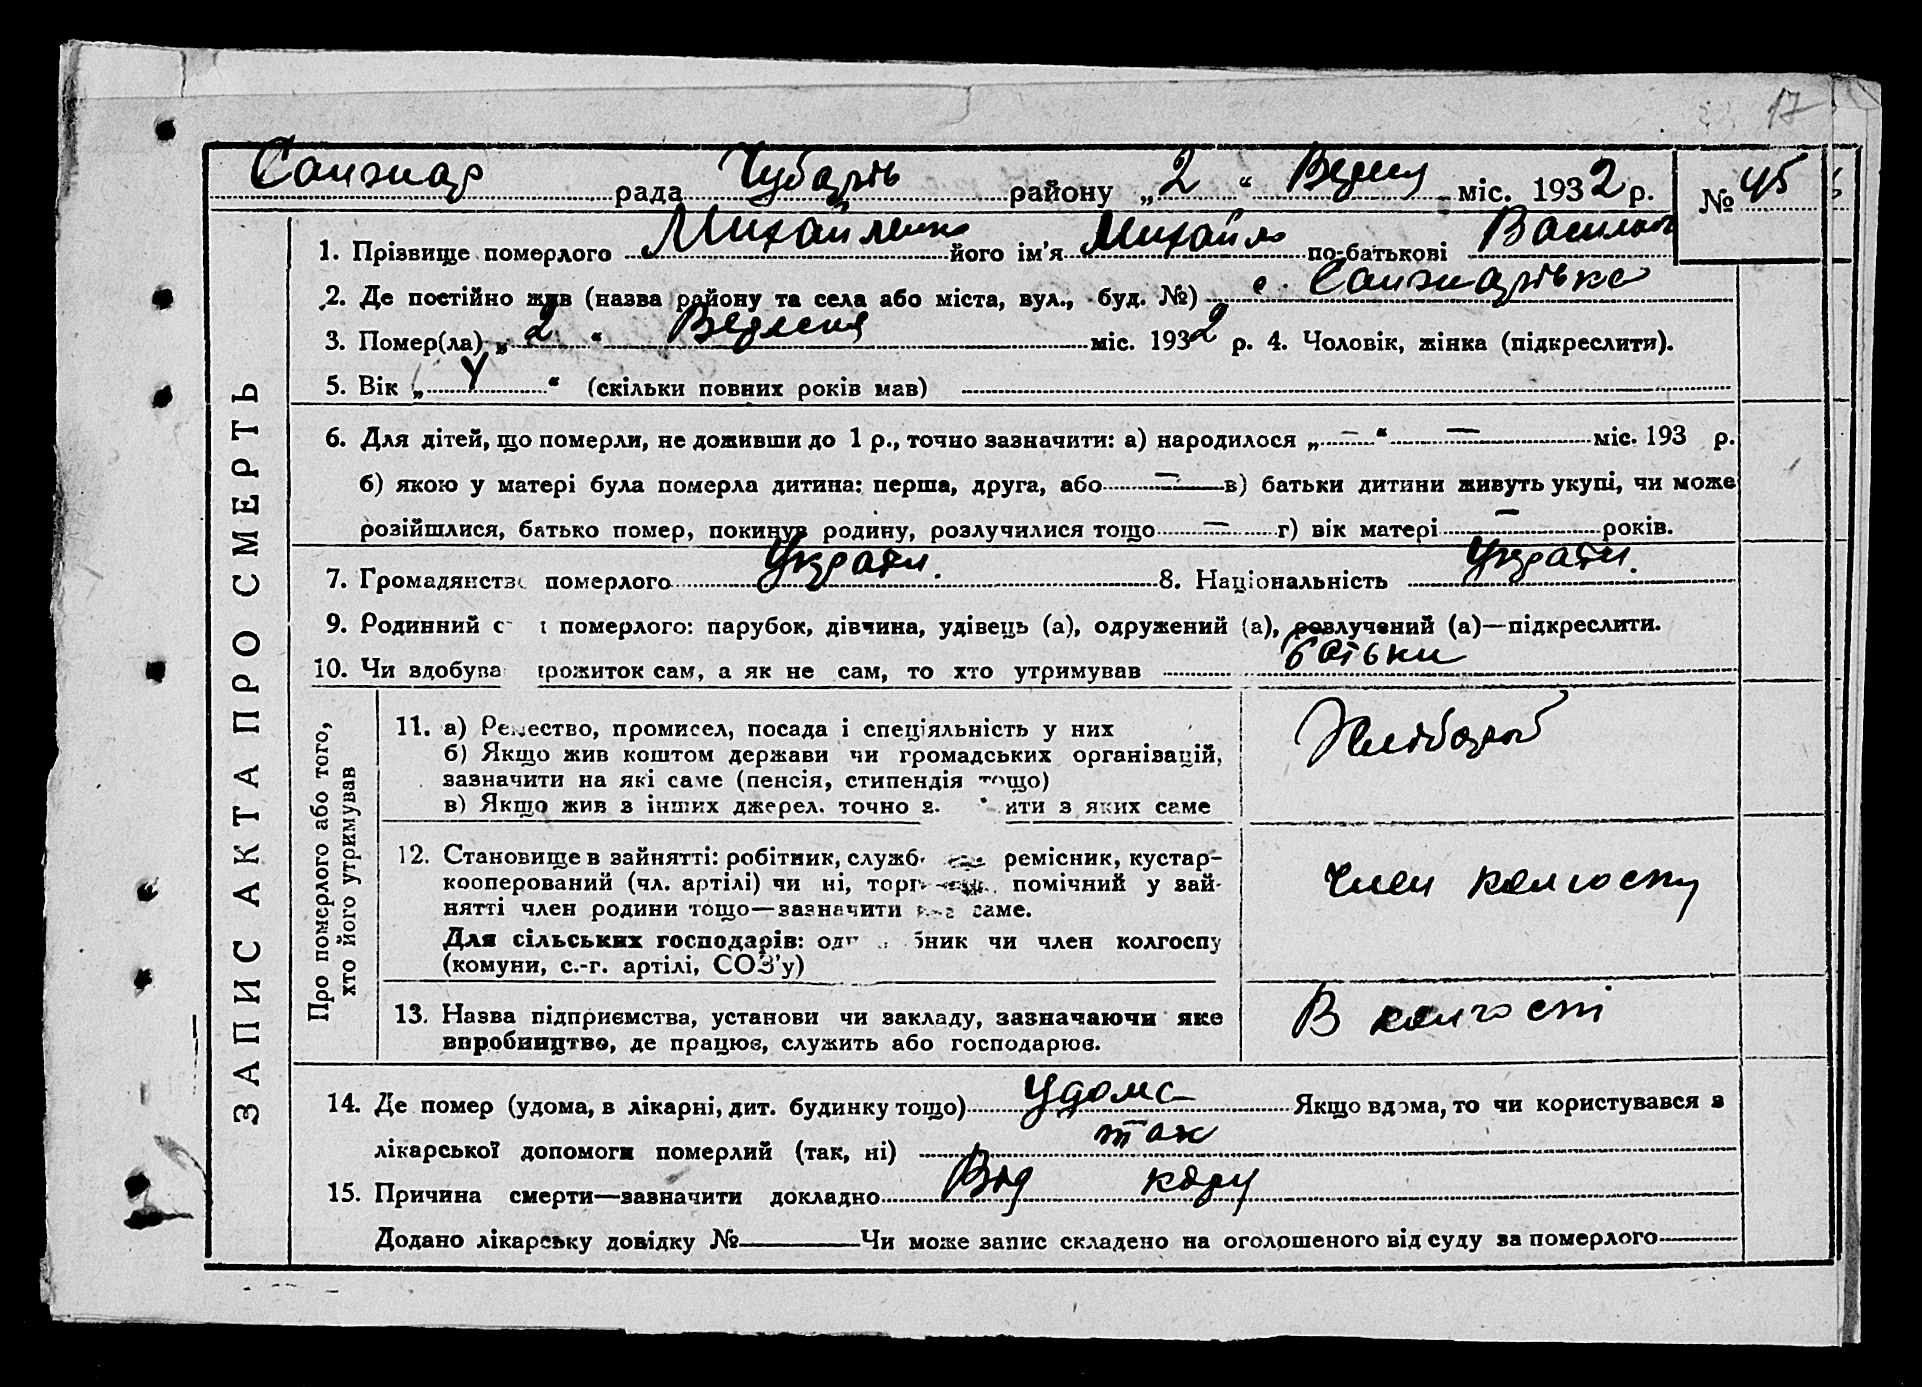 17
Санжар рада Чубарів району „2“ Вересня міс. 1932 р. № 45
1. Прізвище померлого Михайленко його ім'я Михайло по-батькові Василь
2. Де постійно жив (назва району та села або міста, вул., буд. №) с. Санжарівка
3. Помер(ла) „2“ Вересня міс. 1932 р. 4. Чоловік, жінка (підкреслити).
5. Вік „4“ (скільки повних років мав)
6. Для дітей, що померли, не доживши до 1 р., точно зазначити: а) народилося „—“ — міс. 193 р.
б) якою у матері була померла дитина: перша, друга, або — в) батьки дитини живуть укупі, чи може
розійшлися, батько помер, покинув родину, розлучилися тощо — г) вік матері — років.
7. Громадянство померлого Україн. 8. Національність Україн.
9. Родинний с і померлого: парубок, дівчина, удівець (а), одружений (а), розлучений (а)—підкреслити.
10. Чи вдобува прожиток сам, а як не сам, то хто утримував батьки
ЗАПИС АКТА ПРО СМЕРТЬ
Про померлого або того,
хто його утримував
11. а) Ремество, промисел, посада і спеціяльність у них
б) Якщо жив коштом держави чи громадських організацій,
зазначити на які саме (пенсія, стипендія тощо)
в) Якщо жив з інших джерел. точно з ити з яких саме
Хлібороб
12. Становище в зайнятті: робітник, служб ремісник, кустар-
кооперований (чл. артілі) чи ні, торг помічний у зай-
нятті член родини тощо—зазначити саме.
Для сільських господарів: од бник чи член колгоспу
(комуни, с.-г. артілі, СОЗ'у)
Член колгоспу
13. Назва підприємства, установи чи закладу, зазначаючи яке
виробництво, де працює, служить або господарює.
В колгоспі
14. Де помер (удома, в лікарні, дит. будинку тощо) Удома Якщо вдома, то чи користувався з
лікарської допомоги померлий (так, ні) так
15. Причина смерти—зазначити докладно Від кору
Додано лікарську довідку № Чи може запис складено на оголошеного від суду за померлого